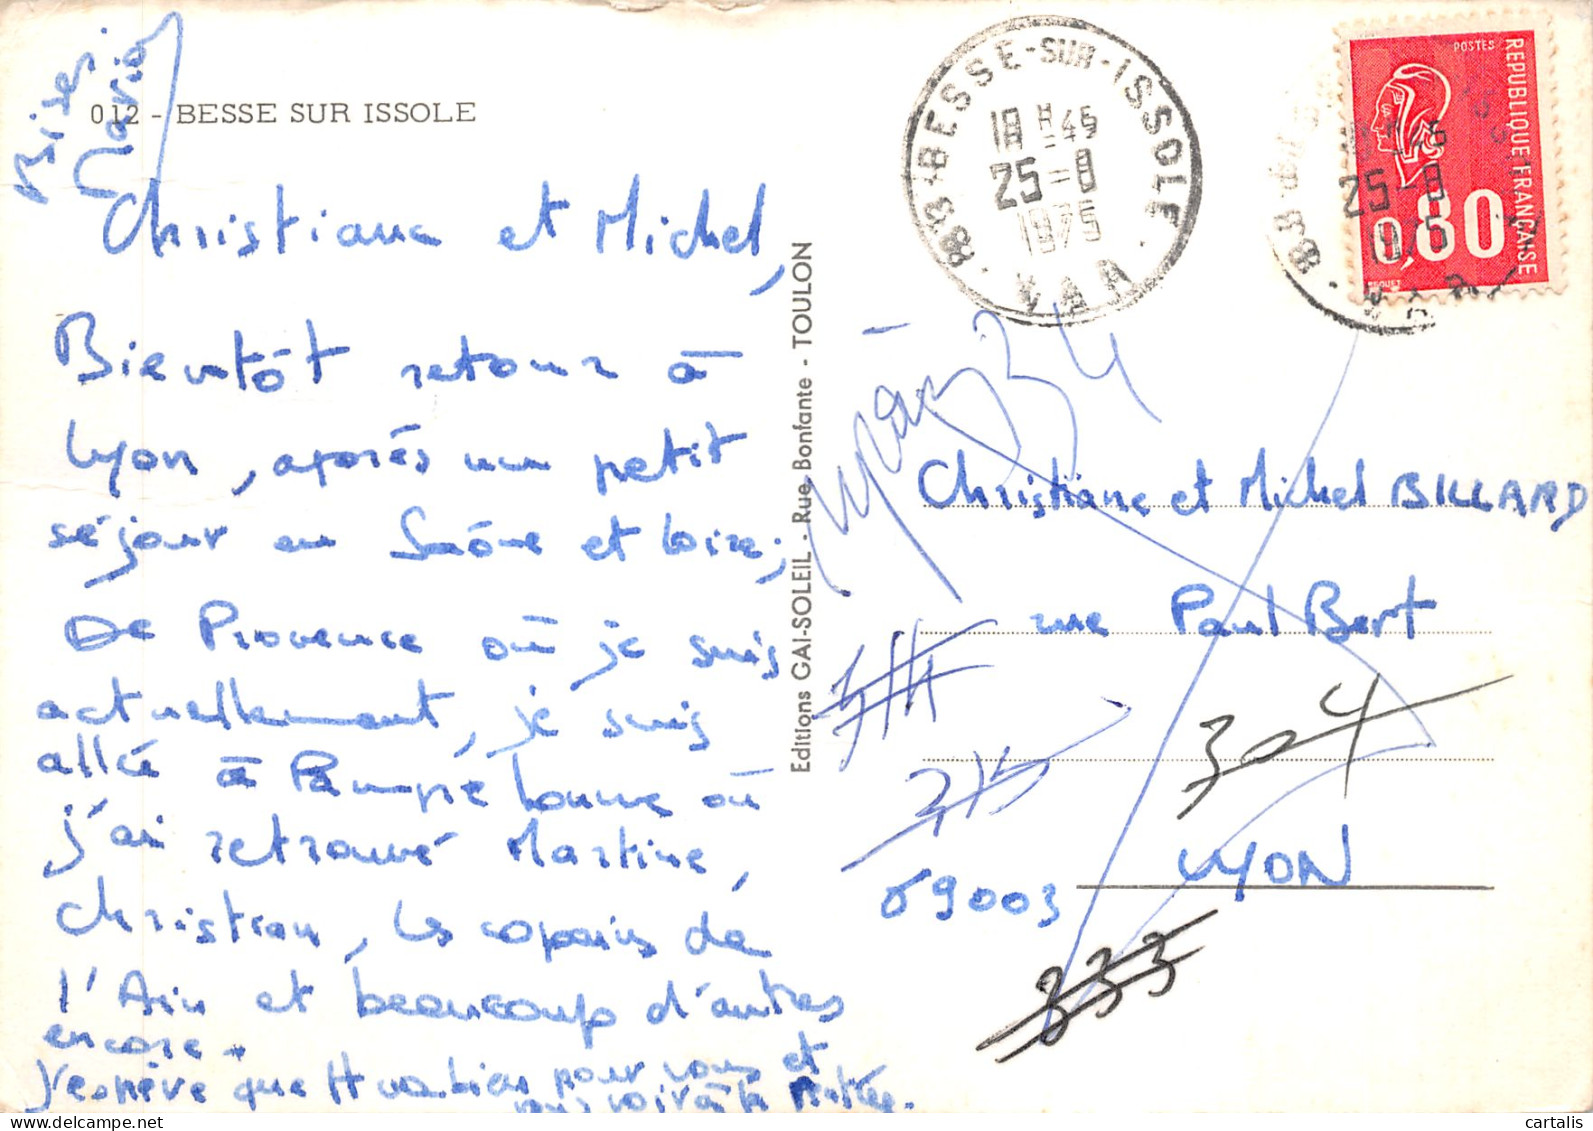 012 - BESSE SUR ISSOLE
Bises
Christiane et Michel,
Bientôt retour à
Lyon, après un petit
séjour en Saône et Loire;
De Provence où je suis
actuellement, je suis
allée à Pampelonne où
j'ai retrouvé Martine,
Christian, les copains de
l'Ain et beaucoup d'autres
encore.
J'espère que tt va bien pour vous et
vous voir à la rentrée.
Editions GAI-SOLEIL - Rue Bonfante - TOULON
83 · BESSE-SUR-ISSOLE ·
18 H 45
25 - 8
1975
VAR
POSTES
REPUBLIQUE FRANÇAISE
0,80
BEQUET
25 - 8
1975
83
34
Christiane et Michel BILLARD
rue Paul Bert
304
315
69003 LYON
333
cartalis